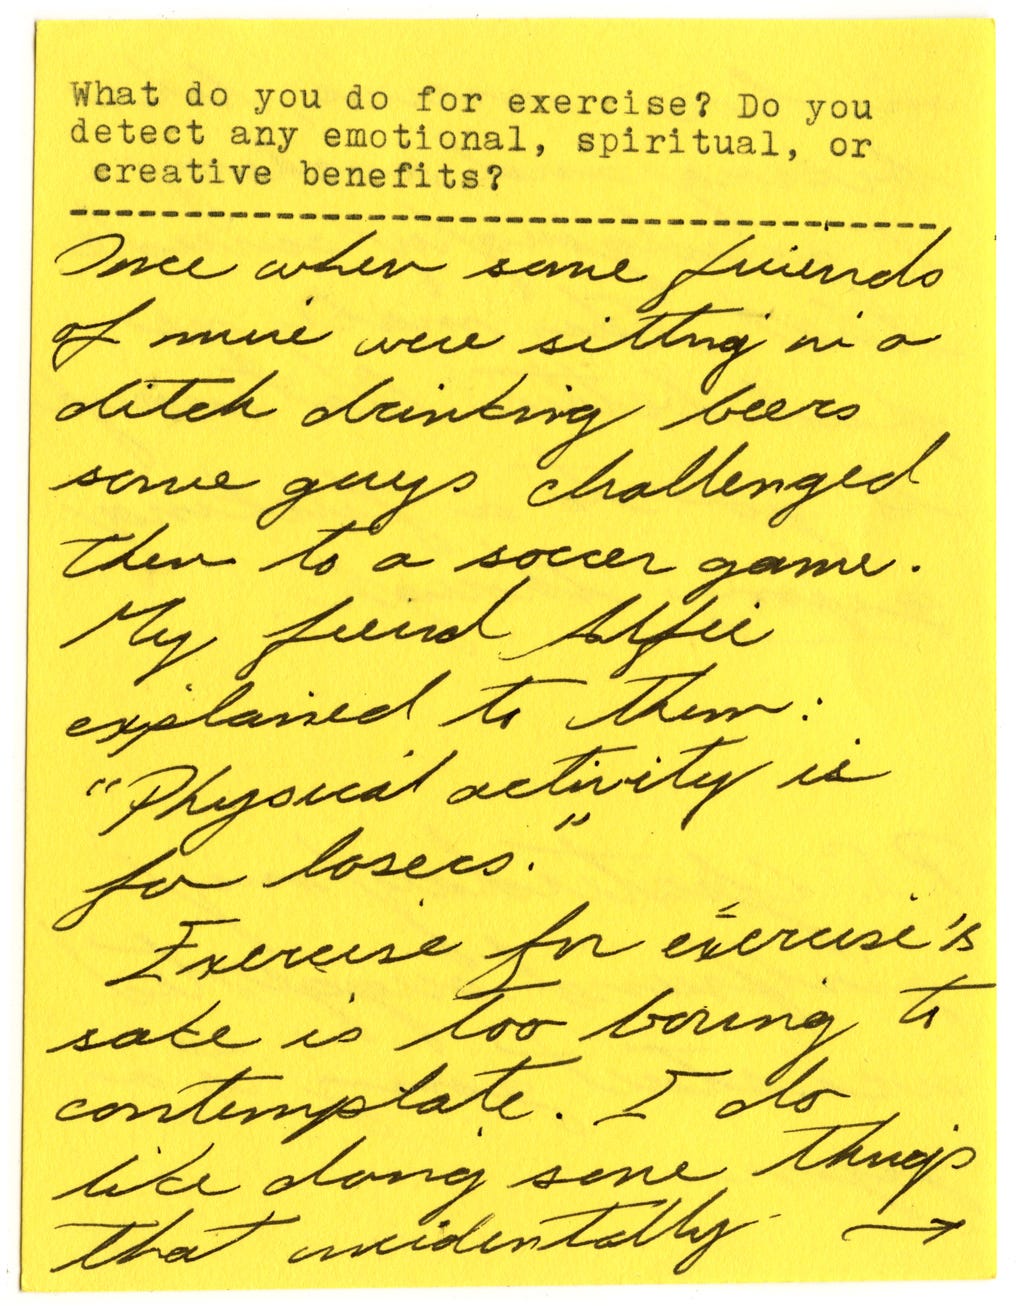 What do you do for exercise? Do you
detect any emotional, spiritual, or
creative benefits?
Once when some friends
of mine were sitting in a
ditch drinking beers
some guys challenged
them to a soccer game.
My friend Alfie
explained to them:
"Physical activity is
for losers."
Exercise for exercise's
sake is too boring to
contemplate. I do
like doing some things
that incidentally →